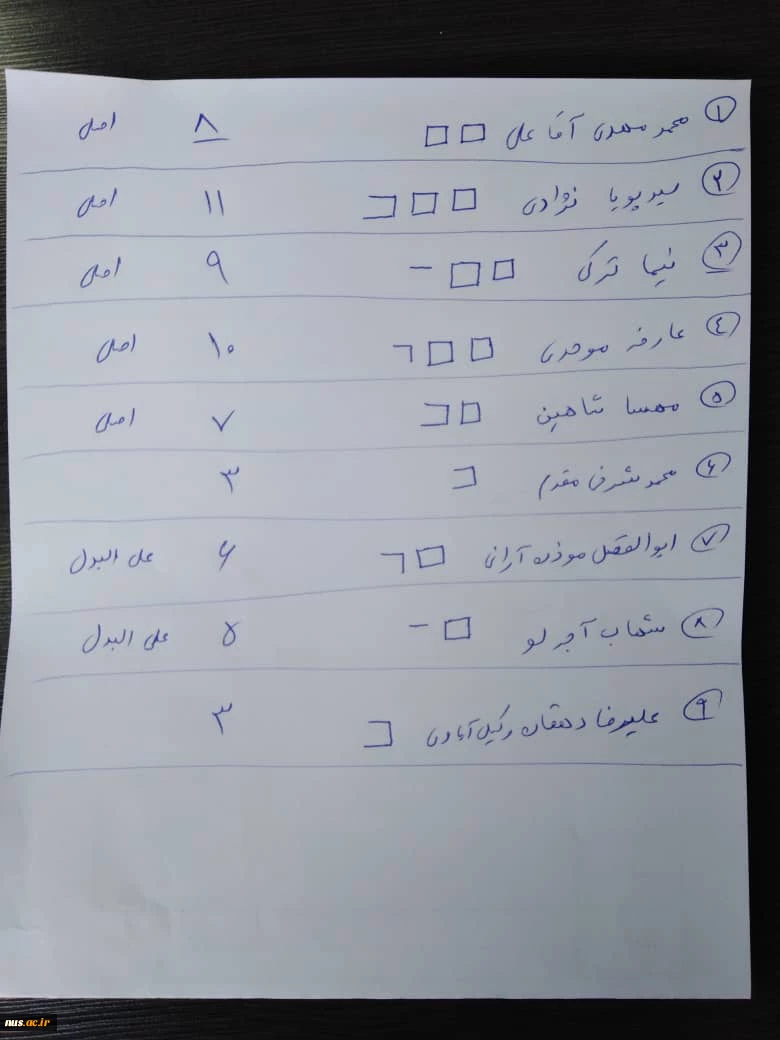 ۱ محمد مهدی آقا علی ۸ اصلی
۲ سید پویا نژادی ۱۱ اصلی
۳ نیما ترکی ۹ اصلی
۴ عارفه موحدی ۱۰ اصلی
۵ مهسا شاهین ۷ اصلی
۶ محمد شرفی مقدم ۳
۷ ابوالفضل موذن آرانی ۶ علی البدل
۸ شهاب آجرلو ۵ علی البدل
۹ علیرضا دهقان وکیل آبادی ۳
nus.ac.ir